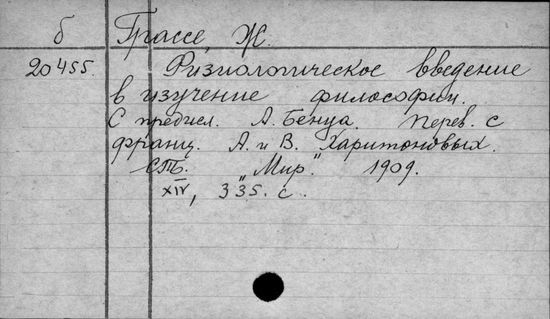 б Грассе, Ж.
20455. Физиологическое введение
в изучение философии.
С предисл. А. Бенуа. Перев. с
франц. А. и В. Харитоновых.
СПб. "Мир". 1909.
XIV, 335. с.